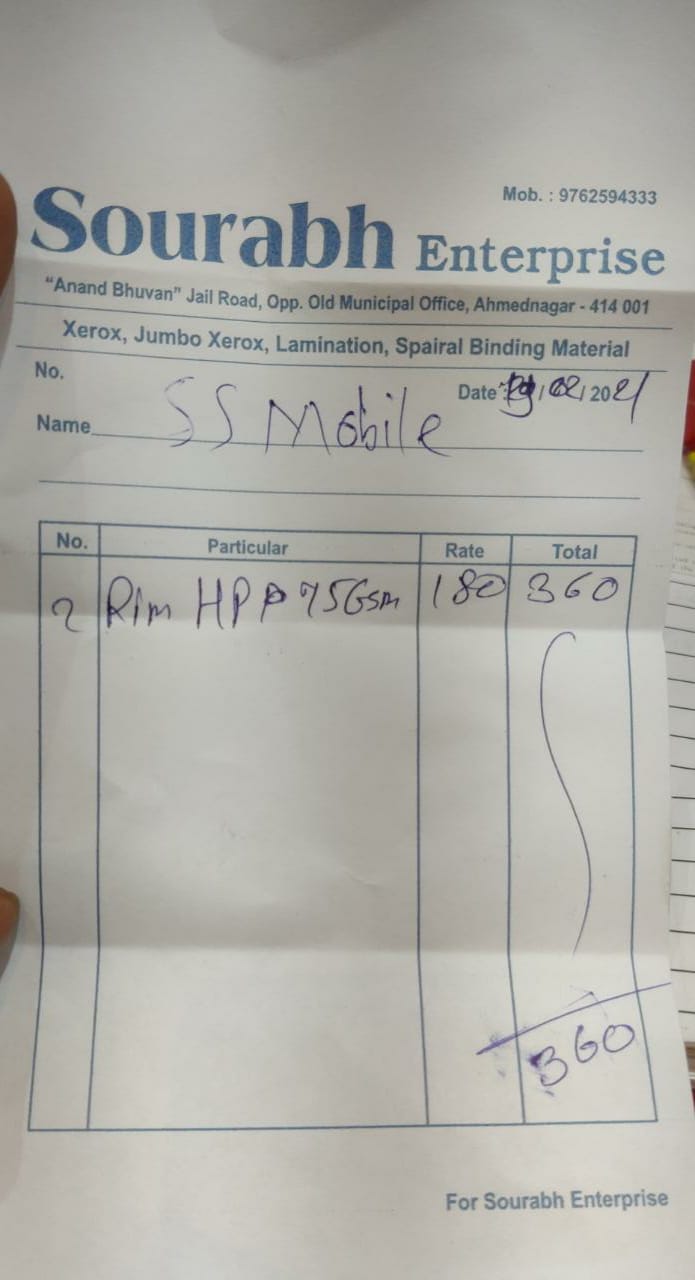 Mob. : 9762594333
Sourabh Enterprise
“Anand Bhuvan” Jail Road, Opp. Old Municipal Office, Ahmednagar - 414 001
Xerox, Jumbo Xerox, Lamination, Spairal Binding Material
No.
Date : /02/2021
Name SS Mobile
No. Particular Rate Total
2 Rim HPP 75Gsm 180 360
360
For Sourabh Enterprise